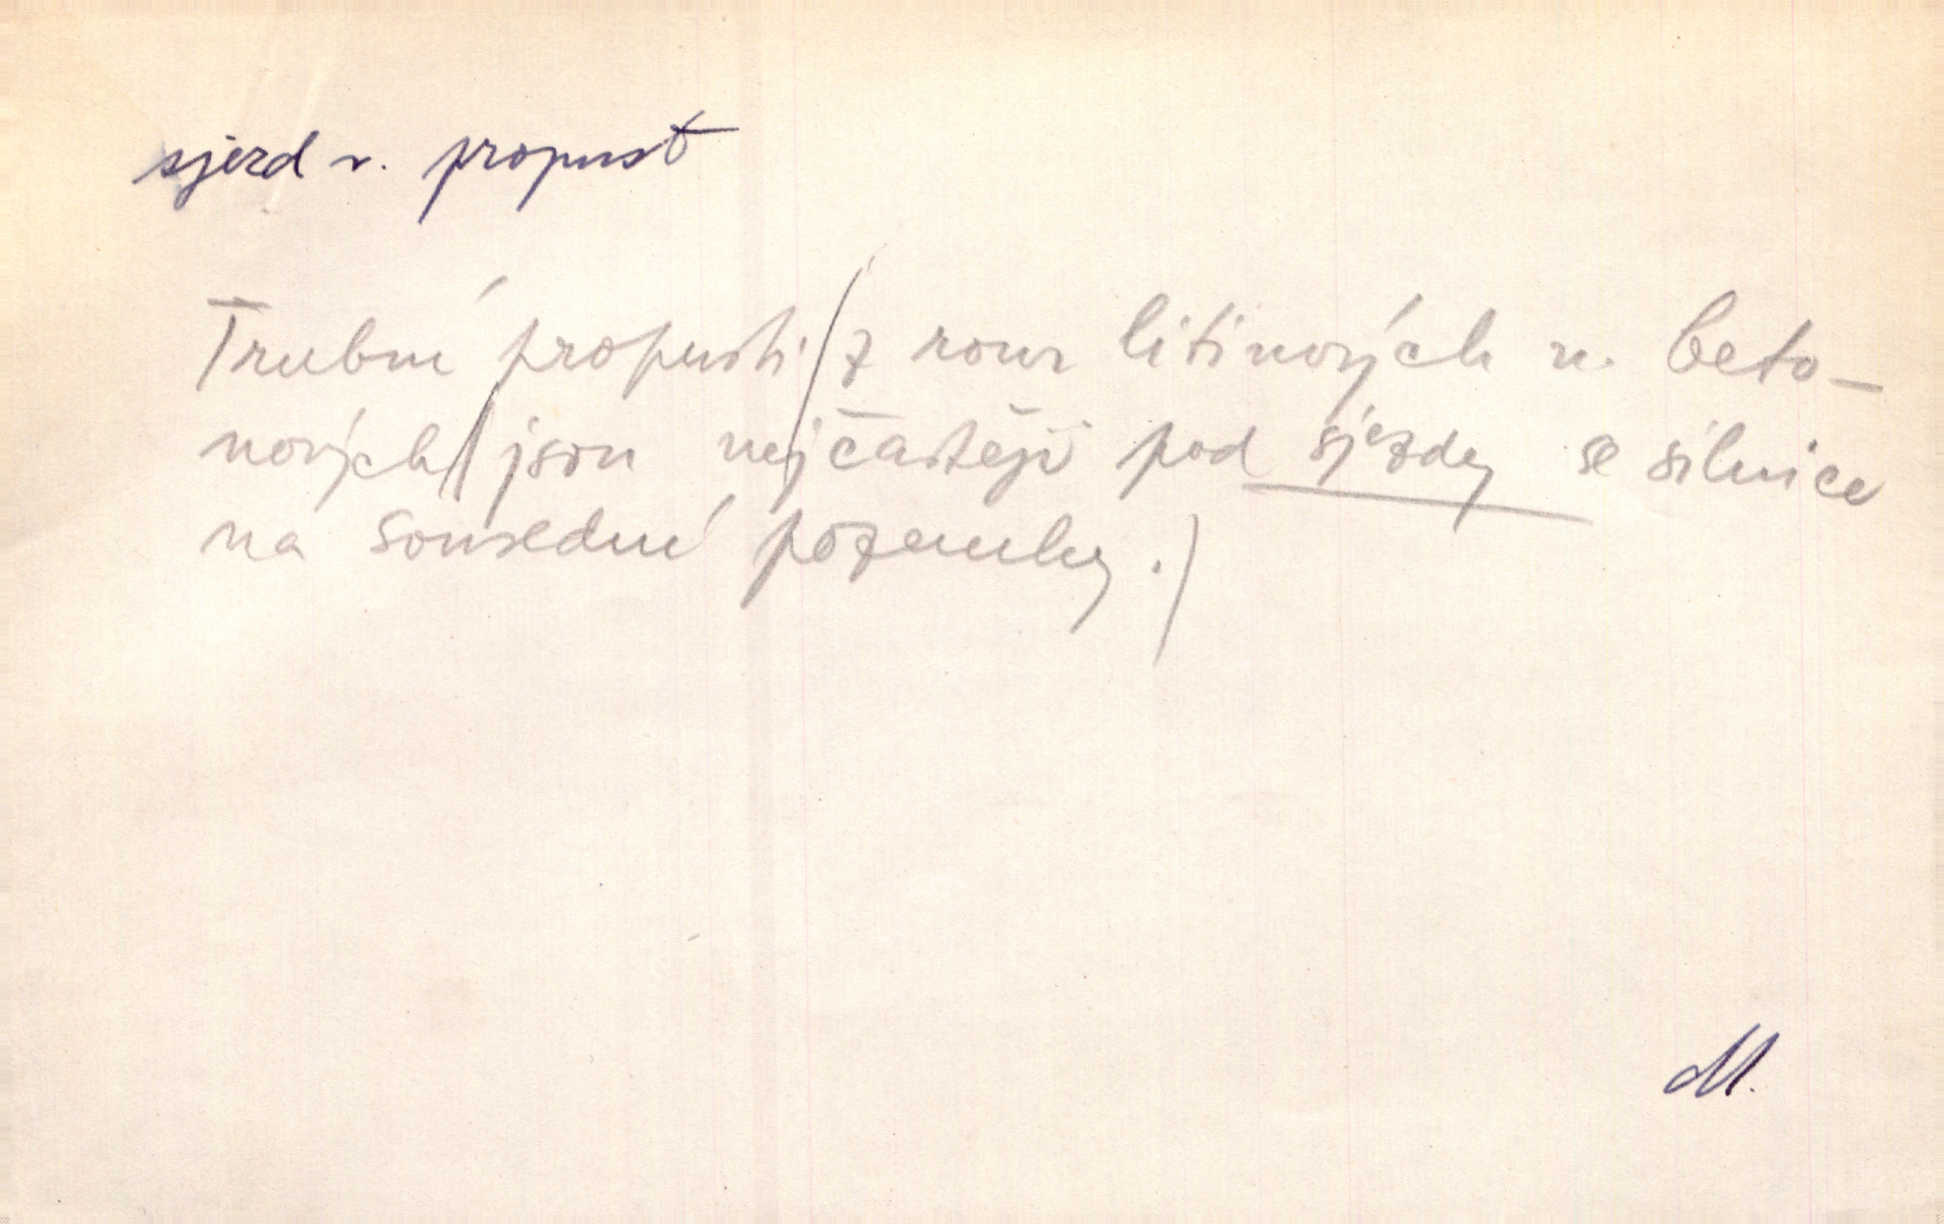 sjezd v. propust
Trubní propusti /z rour litinových n. beto-
nových/ jsou nejčastěji pod sjezdy se silnice
na sousední pozemky.)
M.